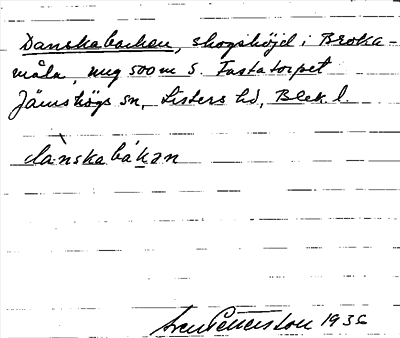 Danskabacken, skogshöjd i Broka-
måla, ung 500 m S. Tastatorpet
Jämshögs sn, Listers hd, Blek. l.
dànskabákan
Sven Pettersson 1936